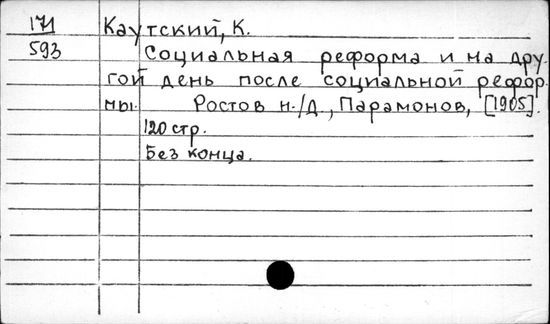 171
593
Каутский, К.
Социальная реформа и на дру-
гой день после социальной рефор-
мы. Ростов н./Д., Парамонов, [1905].
120 стр.
Без конца.